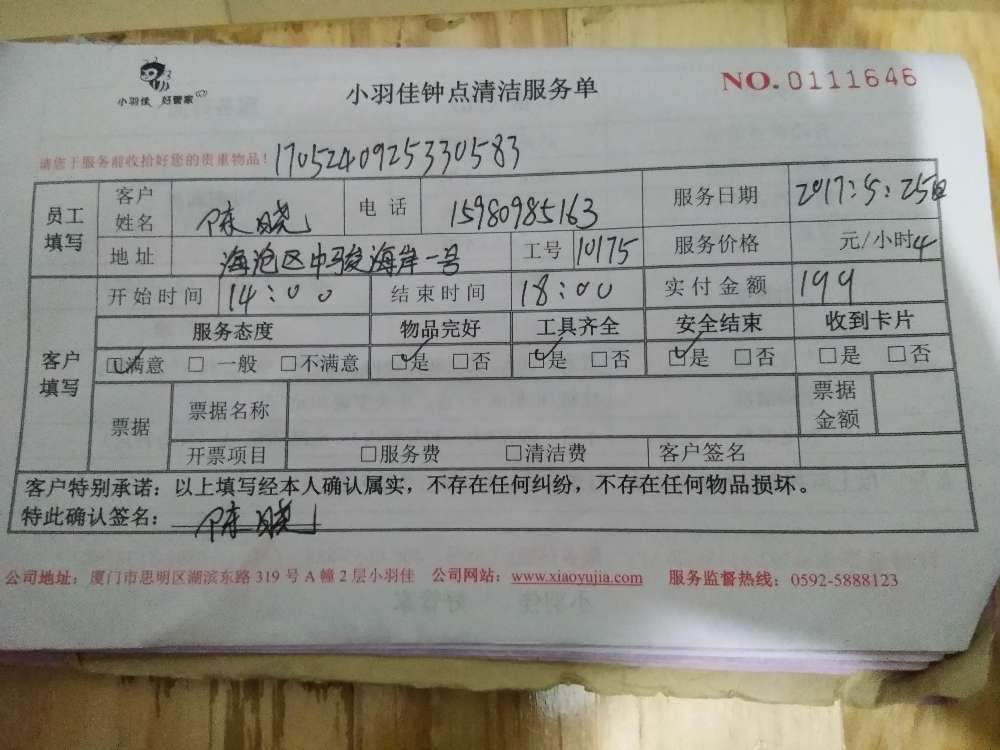 小羽佳 好管家
小羽佳钟点清洁服务单
NO. 0111646
请您于服务前收拾好您的贵重物品! 1705240925330583
员工填写 客户姓名 陈晓 电话 15980985163 服务日期 2017:5:25日
地址 海沧区中骏海岸一号 工号 10175 服务价格 元/小时 4
客户填写 开始时间 14:00 结束时间 18:00 实付金额 199
服务态度 物品完好 工具齐全 安全结束 收到卡片
☑满意 □一般 □不满意 ☑是 □否 ☑是 □否 ☑是 □否 □是 □否
票据 票据名称 票据金额
开票项目 □服务费 □清洁费 客户签名
客户特别承诺：以上填写经本人确认属实，不存在任何纠纷，不存在任何物品损坏。
特此确认签名： 陈晓
公司地址：厦门市思明区湖滨东路 319 号 A 幢 2 层小羽佳 公司网站：www.xiaoyujia.com 服务监督热线：0592-5888123